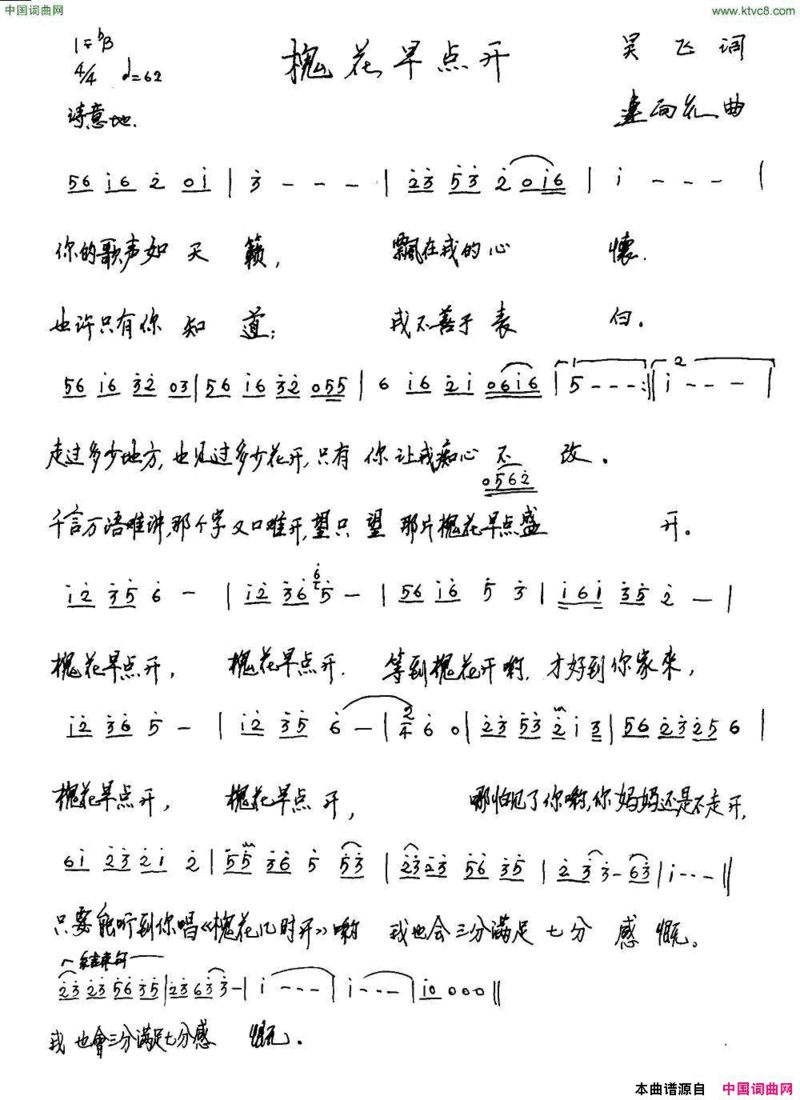 中国词曲网
www.ktvc8.com
1=ᵇB
4/4 ♩=62
槐花早点开
吴飞 词
曲
诗意地.
56 i6 2 0i | 3 - - - | 23 53 2 0i6 | i - - - |
你的歌声如天籁, 飘在我的心怀.
也许只有你知道; 我不善于表白。
56 i6 32 03 | 56 i6 32 055 | 6 i6 2i 06i6 | 5 - - - :|| i - - - |
走过多少地方,也见过多少花开,只有你让我痴心不改。
0562
千言万语难讲,那个字又口难开,望只望那片槐花早点盛开。
i2 35 6 - | i2 36 5 - | 56 i6 5 3 | i6i 35 2 - |
槐花早点开, 槐花早点开. 等到槐花开哟.才好到你家来,
i2 36 5 - | i2 35 6 - | 2/4 6 0 | 23 53 2i3 | 56 2325 6 |
槐花早点开, 槐花早点开, 哪怕见了你哟,你妈妈还是不走开,
6i 232i 2 | 55 36 5 53 | 2323 56 35 | 2 33 - 63 | i - - - ||
只要能听到你唱《槐花几时开》哟 我也会三分满足七分感慨。
结束句
23 23 56 35 | 23 63 3 - | i - - - | i - - - | i0 0 0 0 ||
我也會三分满足七分感慨。
本曲谱源自 中国词曲网